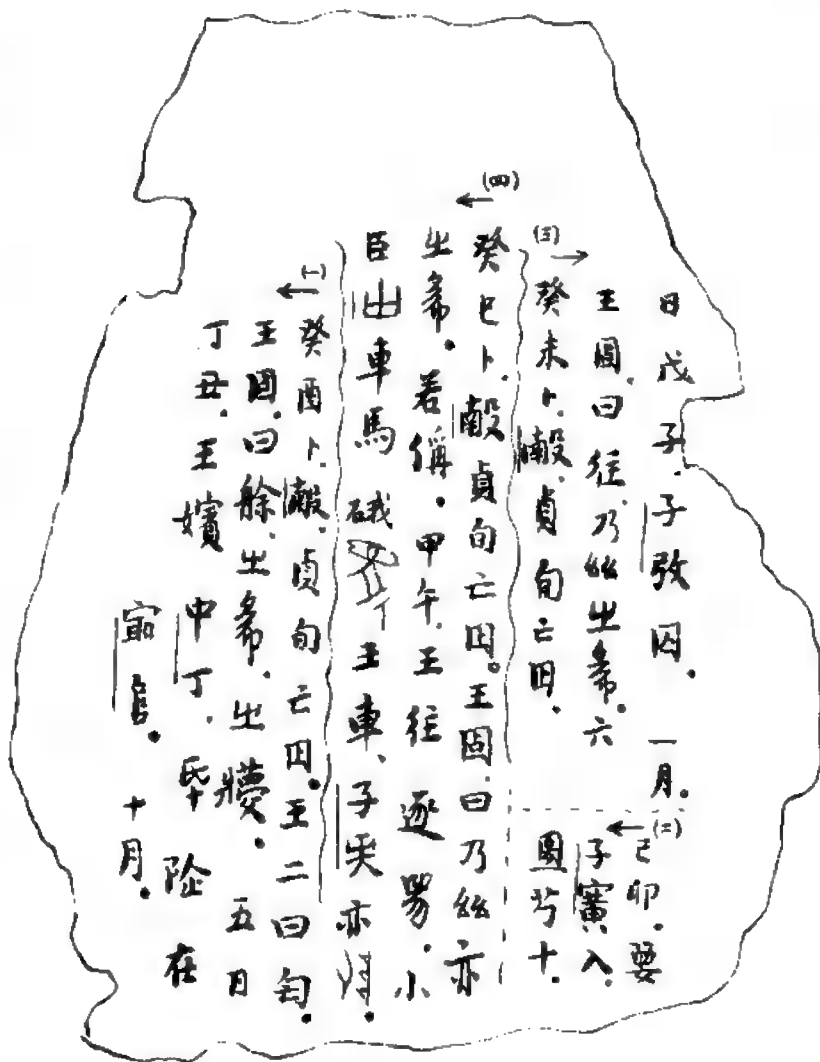 (一)
癸酉卜.㱿.貞旬亡囚.王二曰匄.
王固.曰艅.㞢希.㞢㝱.五日
丁丑.王嬪中丁.氒险在
十月.
(二)
己卯.
子入.
十.
(三)
癸未卜.㱿.貞旬亡囚.
王固.曰往.乃𢆶㞢希.六
日戊子.子弢囚.一月.
(四)
癸巳卜.㱿貞旬亡囚.王固.曰乃𢆶亦
㞢希.若偁.甲午.王往逐兕.小
臣車馬硪王車.子央亦